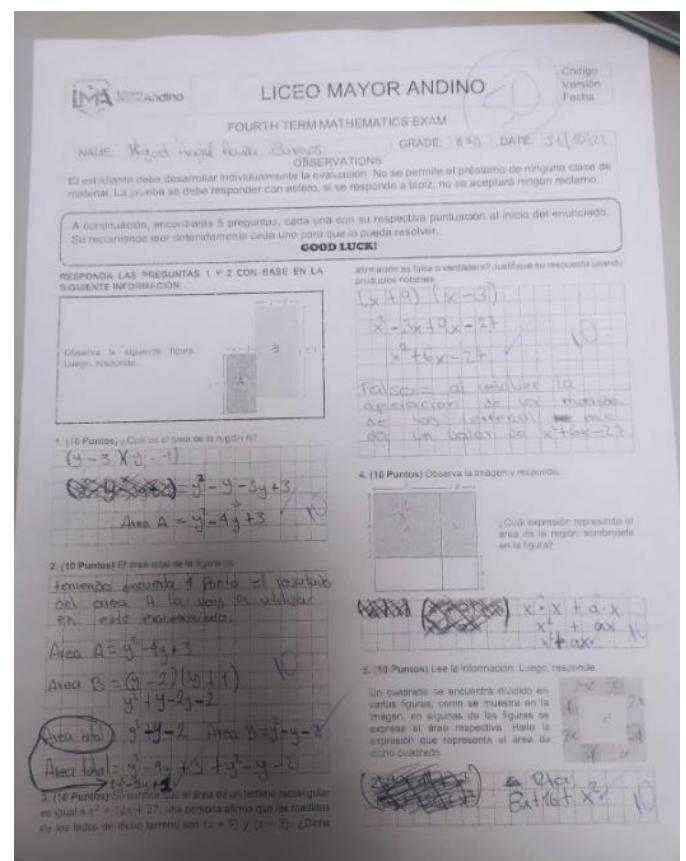 LMA
Andino
LICEO MAYOR ANDINO
Código
Versión
Fecha
50
FOURTH TERM MATHEMATICS EXAM
NAME: Miguel Angel
GRADE:
DATE: 31/10/22
OBSERVATIONS
El estudiante debe desarrollar individualmente la evaluación. No se permite el préstamo de ninguna clase de
material. La prueba se debe responder con esfero, si se responde a lápiz, no se aceptará ningún reclamo.
A continuación, encontrarás 5 preguntas, cada una con su respectiva puntuación al inicio del enunciado.
Se recomienda leer detenidamente cada uno para que lo pueda resolver.
GOOD LUCK!
RESPONDA LAS PREGUNTAS 1 Y 2 CON BASE EN LA
SIGUIENTE INFORMACIÓN.
Observa la siguiente figura.
Luego, responde.
A
B
1. (10 Puntos) ¿Cuál es el área de la región A?
(y-3)(y-1)
= y²-y-3y+3
Area A = y²-4y+3
10
2. (10 Puntos) El área total de la figura es
teniendo encuenta 1 Punto el resultado
del area A la voy a utilizar
en este
Area A = y²-4y+3
Area B = (y-2)(y+1)
y²+y-2y-2
10
Area total y²-y-2 Area B = y²-y-2
Area total = y²-4y+3+y²-y-2
2y²-5y+1
3. (10 Puntos) Se conoce que el área de un terreno rectangular
es igual a x² - 12x + 27, una persona afirma que las medidas
de los lados de dicho terreno son (x + 9) y (x - 3). ¿Dicha
afirmación es falsa o verdadera? Justifique su respuesta usando
productos notables
(x+9) (x-3)
x²-3x+9x-27
x²+6x-27
10
Falso = al resolver la
operacion de la medida
de los me
da un valor de x²+6x-27
4. (10 Puntos) Observa la imagen y responde.
¿Cuál expresión representa el
área de la región sombreada
en la figura?
x·x + a·x
x² + ax
x²+ax
10
5. (10 Puntos) Lee la información. Luego, responde.
Un cuadrado se encuentra dividido en
varias figuras, como se muestra en la
imagen, en algunas de las figuras se
expresa el área respectiva. Halla la
expresión que representa el área de
dicho cuadrado.
2x
2x
x²
2x
4
4
8x+16+x²
10